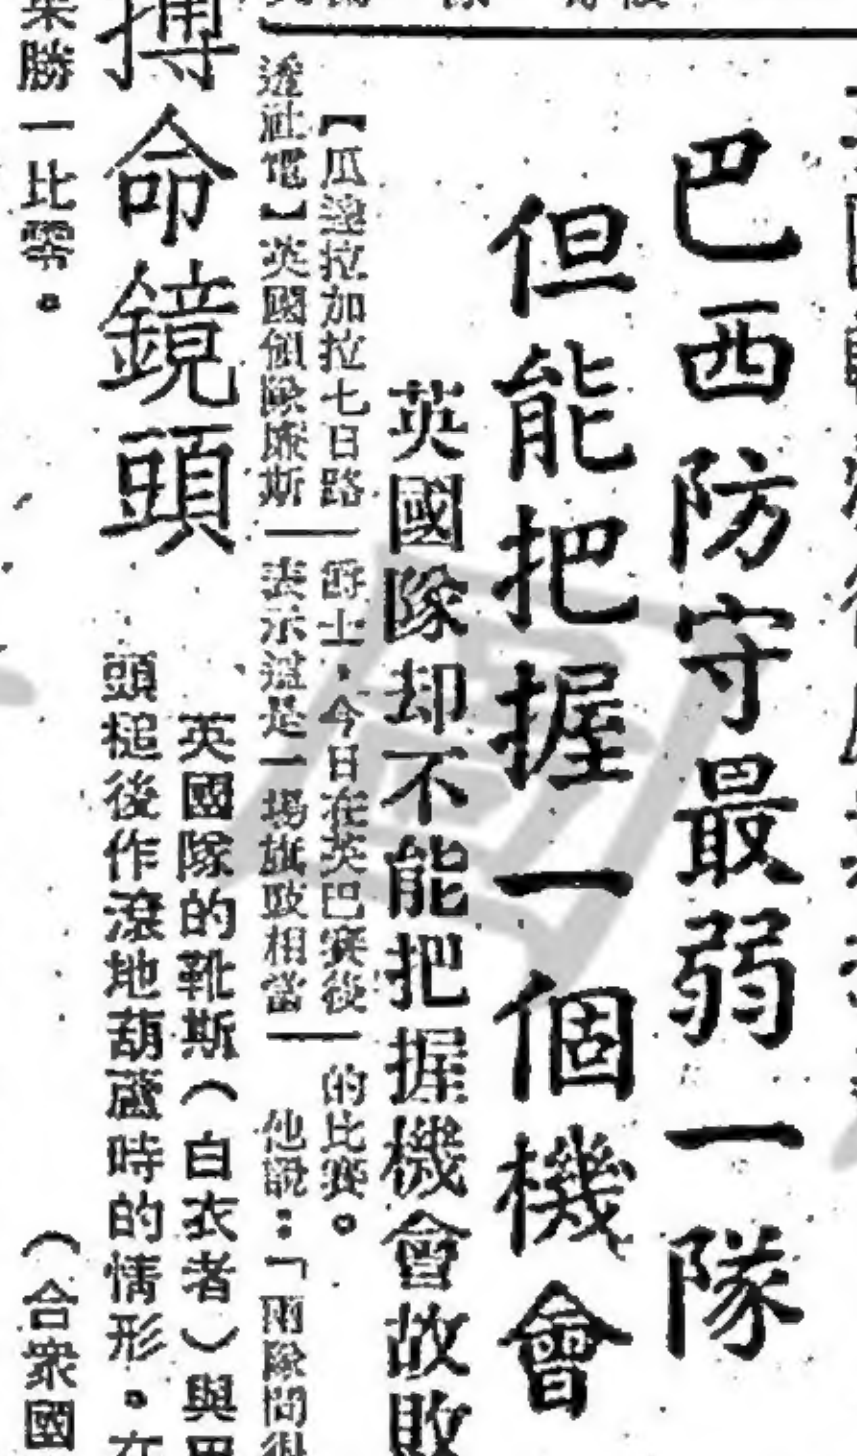 巴西防守最弱一隊
但能把握一個機會
英國隊却不能把握機會故敗
【瓜達拉加拉七日路
透社電】英國領隊廉斯
爵士，今日在英巴賽後
表示這是一場旗鼓相當
的比賽。
他說：「兩隊間很
搏命鏡頭
英國隊的靴斯（白衣者）與巴
頭槌後作滾地葫蘆時的情形。在
果勝一比零。
（合衆國